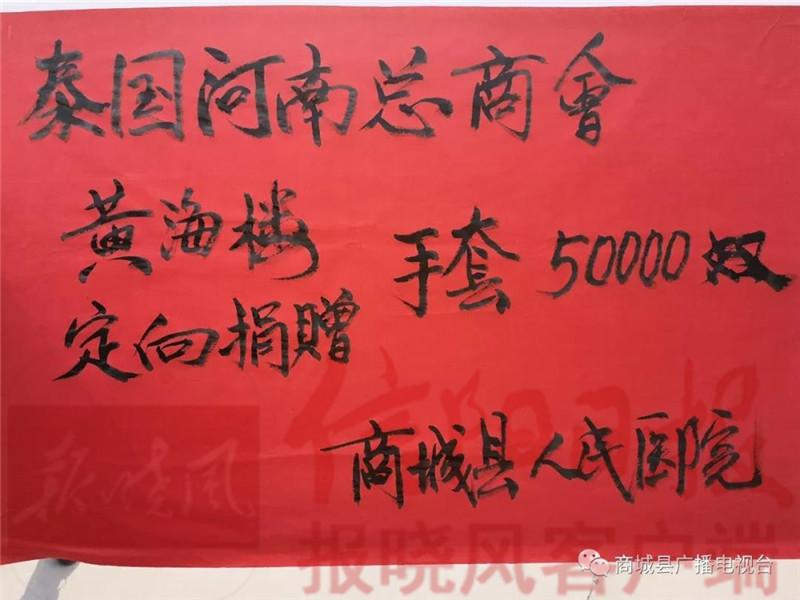 泰国河南总商會
黄海楼
手套 50000 双
定向捐赠
商城县人民医院
信阳日报
报晓风
报晓风客户端
商城县广播电视台